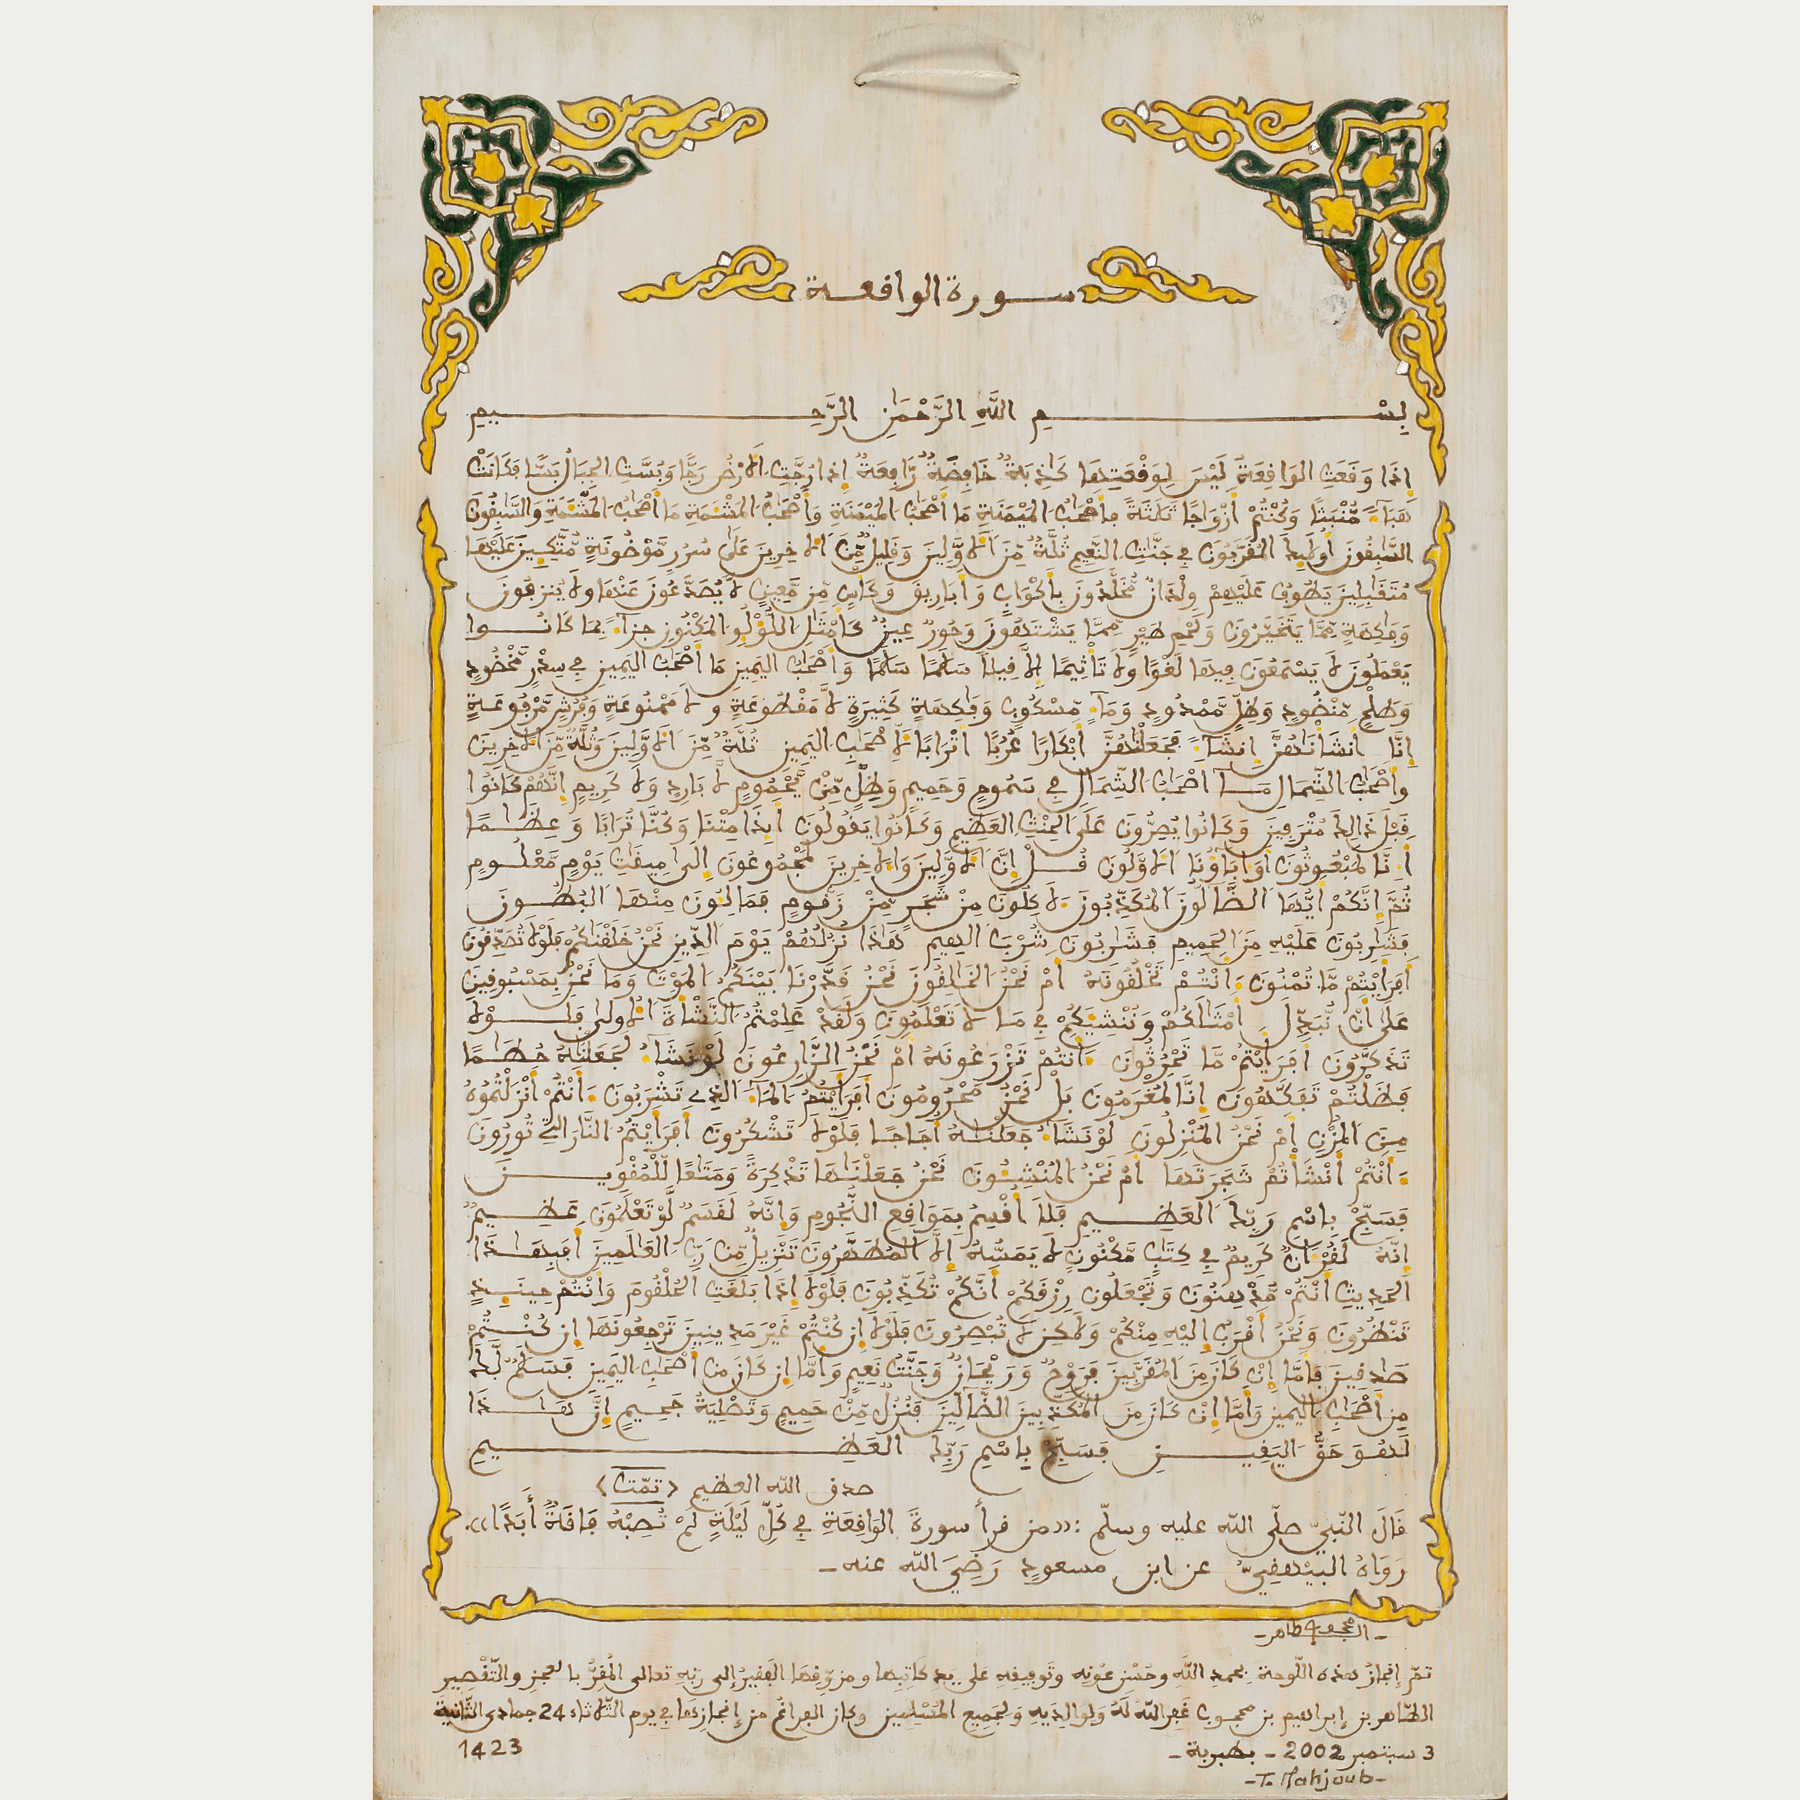 سورة الواقعة
بسم الله الرحمٰن الرحيم
إذا وقعت الواقعة ليس لوقعتها كاذبة خافضة رافعة إذا رجت الارض رجا وبست الجبال بسا فكانت
هباء منبثا وكنتم أزواجا ثلثة فأصحٰب الميمنة ما أصحٰب الميمنة وأصحٰب المشـٔمة ما أصحٰب المشـٔمة والسٰبقون
السٰبقون أولٰئك المقربون في جنٰت النعيم ثلة من الاولين وقليل من الاخرين على سرر موضونة متكـٔين عليها
متقٰبلين يطوف عليهم ولدان مخلدون بأكواب وأباريق وكأس من معين لا يصدعون عنها ولا ينزفون
وفٰكهة مما يتخيرون ولحم طير مما يشتهون وحور عين كأمثٰل اللؤلؤ المكنون جزاء بما كانوا
يعملون لا يسمعون فيها لغوا ولا تأثيما إلا قيلا سلٰما سلٰما وأصحٰب اليمين ما أصحٰب اليمين في سدر مخضود
وطلح منضود وظل ممدود وماء مسكوب وفٰكهة كثيرة لا مقطوعة ولا ممنوعة وفرش مرفوعة
إنا أنشأنٰهن إنشاء فجعلنٰهن أبكارا عربا اترابا لأصحٰب اليمين ثلة من الاولين وثلة من الاخرين
وأصحٰب الشمال ما أصحٰب الشمال في سموم وحميم وظل من يحموم لا بارد ولا كريم إنهم كانوا
قبل ذالك مترفين وكانوا يصرون على الحنث العظيم وكانوا يقولون أيذا متنا وكنا ترابا وعظٰما
أ۬نا لمبعوثون أوءاباؤنا الاولون قل إن الاولين والاخرين لمجموعون إلى ميقٰت يوم معلوم
ثم إنكم أيها الضالون المكذبون ءلاكلون من شجر من زقوم فمالـٔون منها البطون
فشٰربون عليه من الحميم فشٰربون شرب الهيم هٰذا نزلهم يوم الدين نحن خلقنٰكم فلولا تصدقون
أفرايتم ما تمنون ءانتم تخلقونه أم نحن الخٰلقون نحن قدرنا بينكم الموت وما نحن بمسبوقين
على أن نبدل أمثٰلكم وننشئكم في ما لا تعلمون ولقد علمتم النشأة الاولى فلولا
تذكرون أفرايتم ما تحرثون ءأنتم تزرعونه أم نحن الزارعون لو نشاء لجعلنٰه حطٰما
فظلتم تفكهون إنا لمغرمون بل نحن محرومون أفرايتم الماء الذي تشربون ءأنتم أنزلتموه
من المزن أم نحن المنزلون لو نشاء جعلنٰه أجاجا فلولا تشكرون أفرايتم النار التي تورون
ءأنتم أنشأتم شجرتها أم نحن المنشـٔون نحن جعلنٰها تذكرة ومتٰعا للمقوين
فسبح باسم ربك العظيم فلا أقسم بموٰقع النجوم وإنه لقسم لو تعلمون عظيم
إنه لقرءان كريم في كتٰب مكنون لا يمسه إلا المطهرون تنزيل من رب العٰلمين أفبهٰذا
الحديث أنتم مدهنون وتجعلون رزقكم أنكم تكذبون فلولا إذا بلغت الحلقوم وأنتم حينئذ
تنظرون ونحن أقرب إليه منكم ولٰكن لا تبصرون فلولا إن كنتم غير مدينين ترجعونها إن كنتم
صٰدقين فأما إن كان من المقربين فروح وريحان وجنت نعيم وأما إن كان من أصحٰب اليمين فسلٰم لك
من أصحٰب اليمين وأما إن كان من المكذبين الضالين فنزل من حميم وتصلية جحيم إن هٰذا
لهو حق اليقين فسبح باسم ربك العظيم
صدق الله العظيم (تمّت)
قال النّبيّ صلّى الله عليه وسلّم : ((من قرأ سورة الواقعة في كلّ ليلة لم تصبه فاقة أبدا)).
رواه البيهقيّ عن ابن مسعود رضي الله عنه -
تمّ إنجاز هذه اللّوحة بحمد الله وحسن عونه وتوفيقه على يد كاتبها ومزوّقها الفقير إلى ربّه تعالى المقرّ بالعجز والتّقصير
الطّاهر بن إبراهيم بن محجوب غفر الله له ولوالديه ولجميع المسلمين وكان الفراغ من إنجازها في يوم الثّلاثاء 24 جمادى الثّانية
1423
3 سبتمبر 2002 - بطبربة -
-T. Mahjoub-